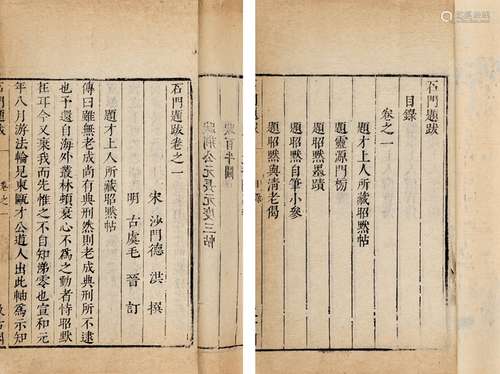 石門題跋
目錄
卷之一
題才上人所藏昭黙帖
題靈源門牓
題昭黙墨蹟
題昭黙自筆小參
題昭黙與清老偈
跋百牛圖
跋荊公元長元度三帖
石門題跋卷之一
宋 沙門德洪 撰
明 古虞毛晉 訂
題才上人所藏昭黙帖
傳曰雖無老成尚有典刑然則老成典刑所不逮
也予還自海外叢林頓衰心不為之動者恃昭默
在耳今又棄我而先惟之不自知涕零也宣和元
年八月游法輪見東甌才公道人出此軸為示知
石門題跋 卷之一